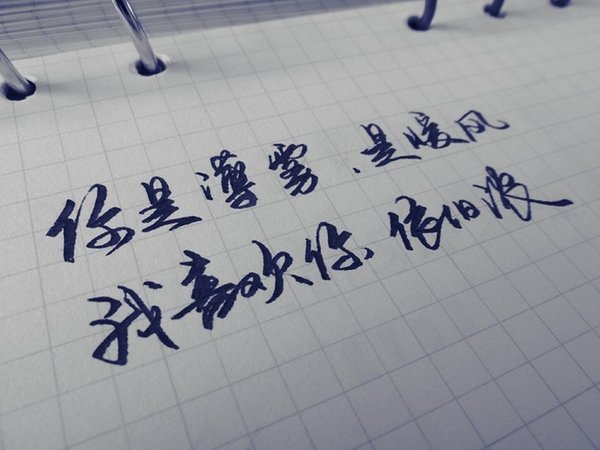 你是薄雾、是暖风
我喜欢你、依旧浪